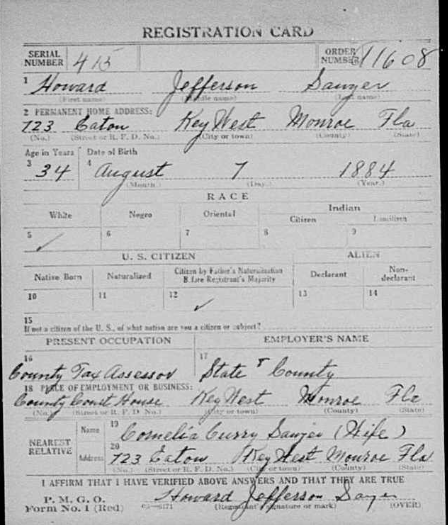 REGISTRATION CARD
SERIAL NUMBER 415 ORDER NUMBER 11608
1 Howard Jefferson Sawyer
(First name) (Middle name) (Last name)
2 PERMANENT HOME ADDRESS:
723 Eaton Key West Monroe Fla
(No.) (Street or R. F. D. No.) (City or town) (County) (State)
Age in Years Date of Birth
3 34 4 August 7 1884
(Month.) (Day.) (Year.)
RACE
White Negro Oriental Indian
Citizen
5 ✓ 6 7 8 9
U. S. CITIZEN ALIEN
Native Born Naturalized Citizen by Father's Naturalization Before Registrant's Majority Declarant Non-declarant
10 11 12 ✓ 13 14
15
If not a citizen of the U. S., of what nation are you a citizen or subject?
PRESENT OCCUPATION EMPLOYER'S NAME
16 County Tax Assessor 17 State & County
18 PLACE OF EMPLOYMENT OR BUSINESS:
County Court House Key West Monroe Fla
(No.) (Street or R. F. D. No.) (City or town) (County) (State)
NEAREST RELATIVE Name 19 Cornelia Curry Sawyer (Wife)
Address 20 723 Eaton Key West Monroe Fla
(No.) (Street or R. F. D. No.) (City or town) (County) (State)
I AFFIRM THAT I HAVE VERIFIED ABOVE ANSWERS AND THAT THEY ARE TRUE
P. M. G. O.
Form No. 1 (Red) Howard Jefferson Sawyer
(Registrant's signature or mark) (OVER)